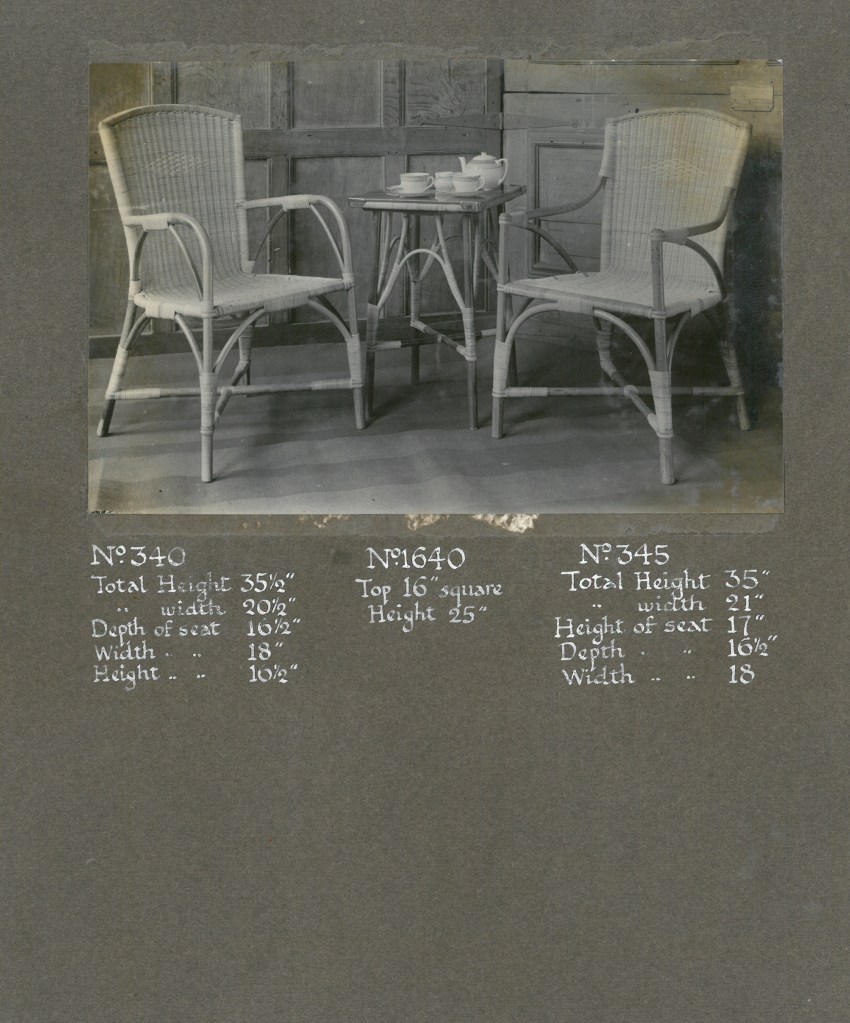 Nº 340
Total Height 35½"
" width 20½"
Depth of seat 16½"
Width " " 18"
Height " " 16½"
Nº 1640
Top 16" square
Height 25"
Nº 345
Total Height 35"
" width 21"
Height of seat 17"
Depth " " 16½"
Width " " 18